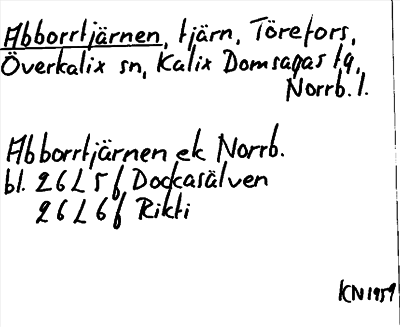 Abborrtjärnen, tjärn, Törefors,
Överkalix sn, Kalix Domsagas tg,
Norrb. l.
Abborrtjärnen ek Norrb.
bl. 26 L 5 f Dockasälven
26 L 6 f Rikti
KN 1959